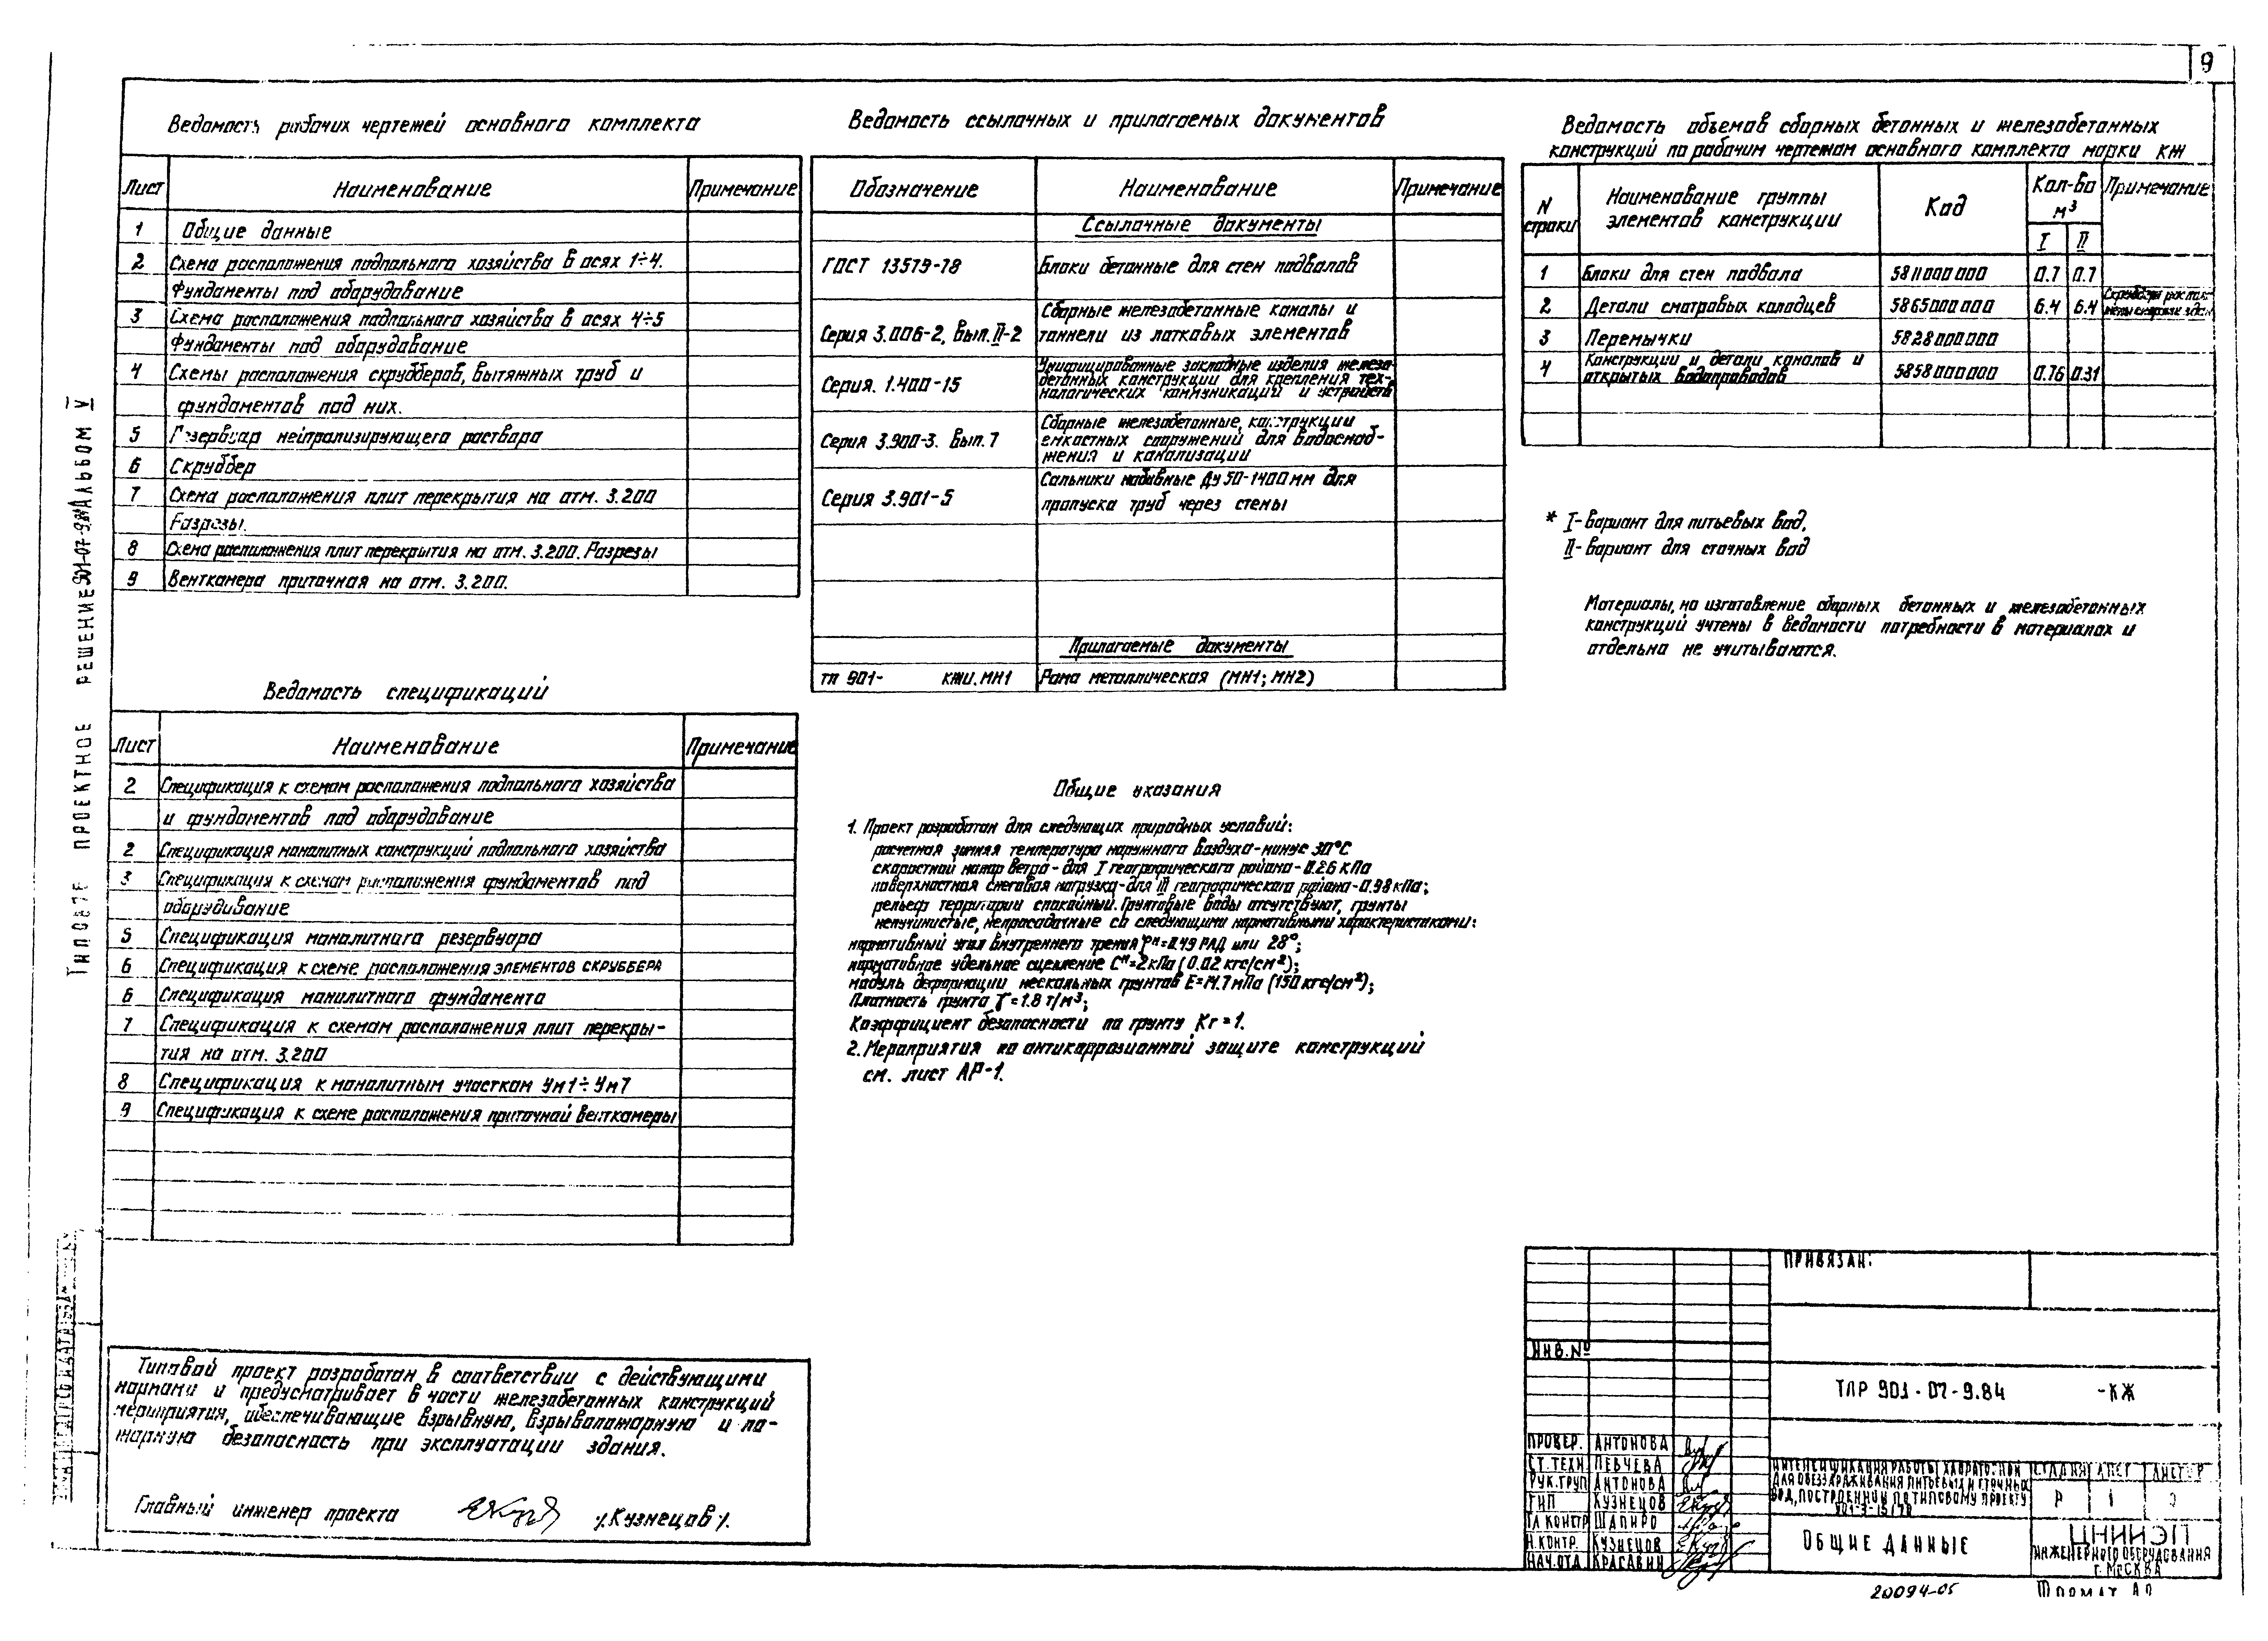 9
Ведомость рабочих чертежей основного комплекта
Лист Наименование Примечание
1 Общие данные
2 Схема расположения подпольного хозяйства в осях 1÷4.
Фундаменты под оборудование
3 Схема расположения подпольного хозяйства в осях 4÷5
Фундаменты под оборудование
4 Схемы расположения скрубберов, вытяжных труб и
фундаментов под них.
5 Резервуар нейтрализующего раствора
6 Скруббер
7 Схема расположения плит перекрытия на отм. 3.200
Разрезы.
8 Схема расположения плит перекрытия на отм. 3.200. Разрезы
9 Венткамера приточная на отм. 3.200.
Ведомость спецификаций
Лист Наименование Примечание
2 Спецификация к схемам расположения подпольного хозяйства
и фундаментов под оборудование
2 Спецификация монолитных конструкций подпольного хозяйства
3 Спецификация к схемам расположения фундаментов под
оборудование
5 Спецификация монолитного резервуара
6 Спецификация к схеме расположения элементов скруббера
6 Спецификация монолитного фундамента
7 Спецификация к схемам расположения плит перекры-
тия на отм. 3.200
8 Спецификация к монолитным участкам Ум1÷Ум7
9 Спецификация к схеме расположения приточной венткамеры
Типовой проект разработан в соответствии с действующими
нормами и предусматривает в части железобетонных конструкций
мероприятия, обеспечивающие взрывную, взрывопожарную и по-
жарную безопасность при эксплуатации здания.
Главный инженер проекта /.Кузнецов/.
Ведомость ссылочных и прилагаемых документов
Обозначение Наименование Примечание
Ссылочные документы
ГОСТ 13579-78 Блоки бетонные для стен подвалов
Серия 3.006-2, вып. II-2 Сборные железобетонные каналы и
тоннели из лотковых элементов
Серия. 1.400-15 Унифицированные закладные изделия железо-
бетонных конструкции для крепления тех-
нологических коммуникаций и устройств
Серия 3.900-3. Вып. 7 Сборные железобетонные, конструкции
емкостных сооружений для водоснаб-
жения и канализации
Серия 3.901-5 Сальники набивные Ду 50-1400 мм для
пропуска труб через стены
Прилагаемые документы
ТП 901- КЖИ.МН1 Рама металлическая (МН1; МН2)
Общие указания
1. Проект разработан для следующих природных условий:
расчетная зимняя температура наружного воздуха-минус 30°С
скоростной напор ветра - для I географического района - 0.26 кПа
поверхностная снеговая нагрузка-для III географического района-0.98 кПа;
рельеф территории спокойный. Грунтовые воды отсутствуют, грунты
непучинистые, непросадочные со следующими нормативными характеристиками:
нормативный угол внутреннего трения φн=0.49 РАД или 28°;
нормативное удельное сцепление Сн=2кПа (0.02 кгс/см²);
модуль деформации нескальных грунтов Е=14.7 мПа (150 кгс/см²);
Плотность грунта γ=1.8 т/м³;
Коэффициент безопасности по грунту Кг=1.
2. Мероприятия по антикоррозионной защите конструкций
см. лист АР-1.
Ведомость объемов сборных бетонных и железобетонных
конструкций по рабочим чертежам основного комплекта марки КЖ
N строки Наименование группы элементов конструкции Код Кол-во м³ Примечание
I II
1 Блоки для стен подвала 5811000000 0.7 0.7
2 Детали смотровых колодцев 5865000000 6.4 6.4
3 Перемычки 5828000000
4 Конструкции и детали каналов и
открытых водопроводов 5858000000 0.76 0.31
* I-вариант для питьевых вод,
II-вариант для сточных вод
Материалы, на изготовление сборных бетонных и железобетонных
конструкций учтены в ведомости потребности в материалах и
отдельно не учитываются.
ТИПОВОЕ ПРОЕКТНОЕ РЕШЕНИЕ 901-07-9.84 АЛЬБОМ V
ПРИВЯЗАН:
ИНВ.№
ТПР 901-07-9.84 -КЖ
ПРОВЕР. АНТОНОВА
СТ.ТЕХН ПЕВЧЕВА
РУК.ГРУП АНТОНОВА
ГИП КУЗНЕЦОВ
ГЛ КОНСТР ШАПИРО
Н.КОНТР. КУЗНЕЦОВ
НАЧ.ОТД. КРАСАВИН
ИНТЕНСИФИКАЦИЯ РАБОТЫ ХЛОРАТОРНОЙ
ДЛЯ ОБЕЗЗАРАЖИВАНИЯ ПИТЬЕВЫХ И СТОЧНЫХ
ВОД, ПОСТРОЕННОЙ ПО ТИПОВОМУ ПРОЕКТУ
СТАДИЯ ЛИСТ ЛИСТОВ
Р 1 9
ОБЩИЕ ДАННЫЕ
ЦНИИЭП
ИНЖЕНЕРНОГО ОБОРУДОВАНИЯ
Г. МОСКВА
20094-05